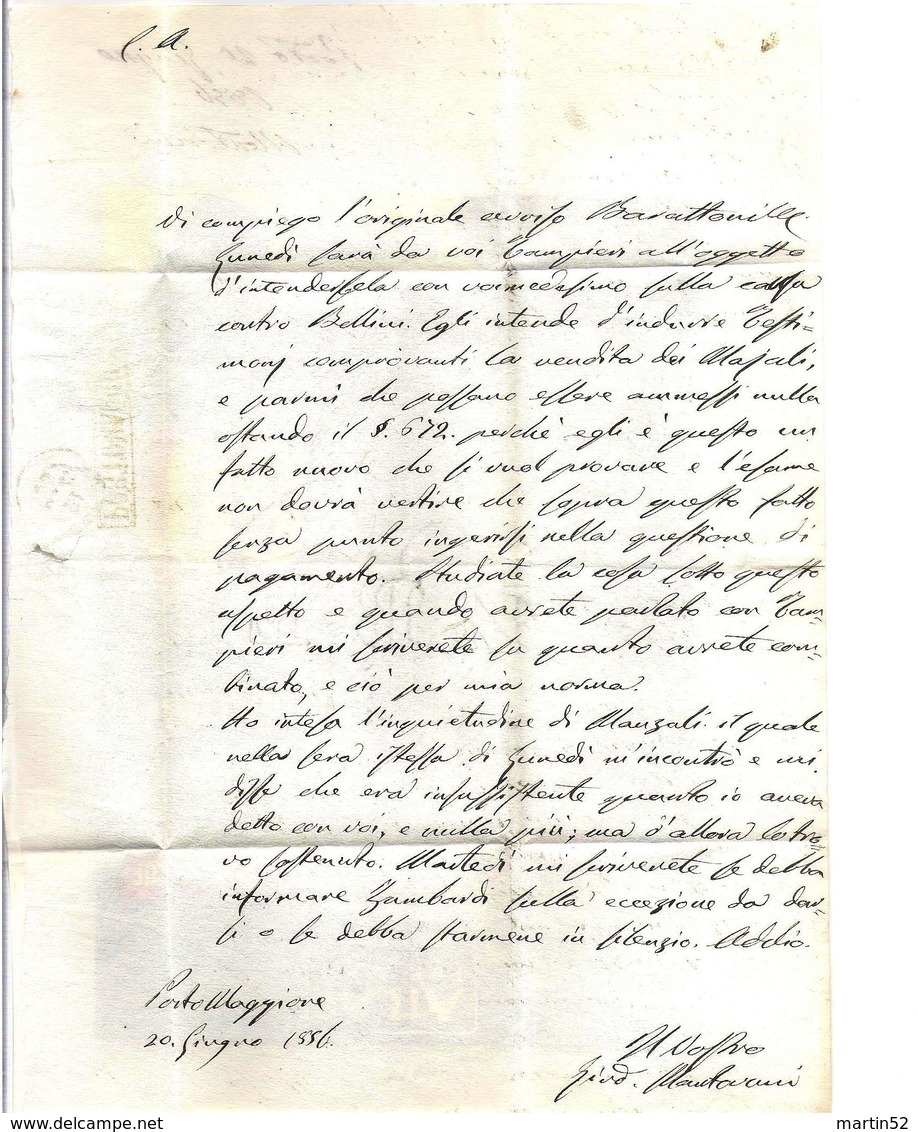 C. A.
Vi compiego l'originale avviso Barattonille.
Lunedì sarà da voi Tampieri all'oggetto
d'intendersela con voi medesimo sulla causa
contro Bellini. Egli intende d'indurre Testi-
monj comprovanti la vendita dei Majali,
e parmi che possano essere ammessi nulla
ostando il §. 672. perchè egli è questo un
fatto nuovo che si vuol provare e l'esame
non dovrà vertire che sopra questo fatto
senza punto ingerirsi nella questione di
pagamento. Studiate la cosa sotto questo
aspetto e quando avrete parlato con Tam-
pieri mi scriverete su quanto avrete com-
binato, e ciò per mia norma.
Ho intesa l'inquietudine di Manzali il quale
nella sera istessa di Lunedì m'incontrò e mi
disse che era insussistente quanto io aveva
detto con voi, e nulla più; ma d'allora lo tro-
vo sostenuto. Martedì mi scriverete se debba
informare Zambardi sulla eccezione da dar-
si o se debba starmene in silenzio. Addio.
Porto Maggiore
20. Giugno 1856.
Il Vostro
Giud. Mantovani
www.delcampe.net
martin52